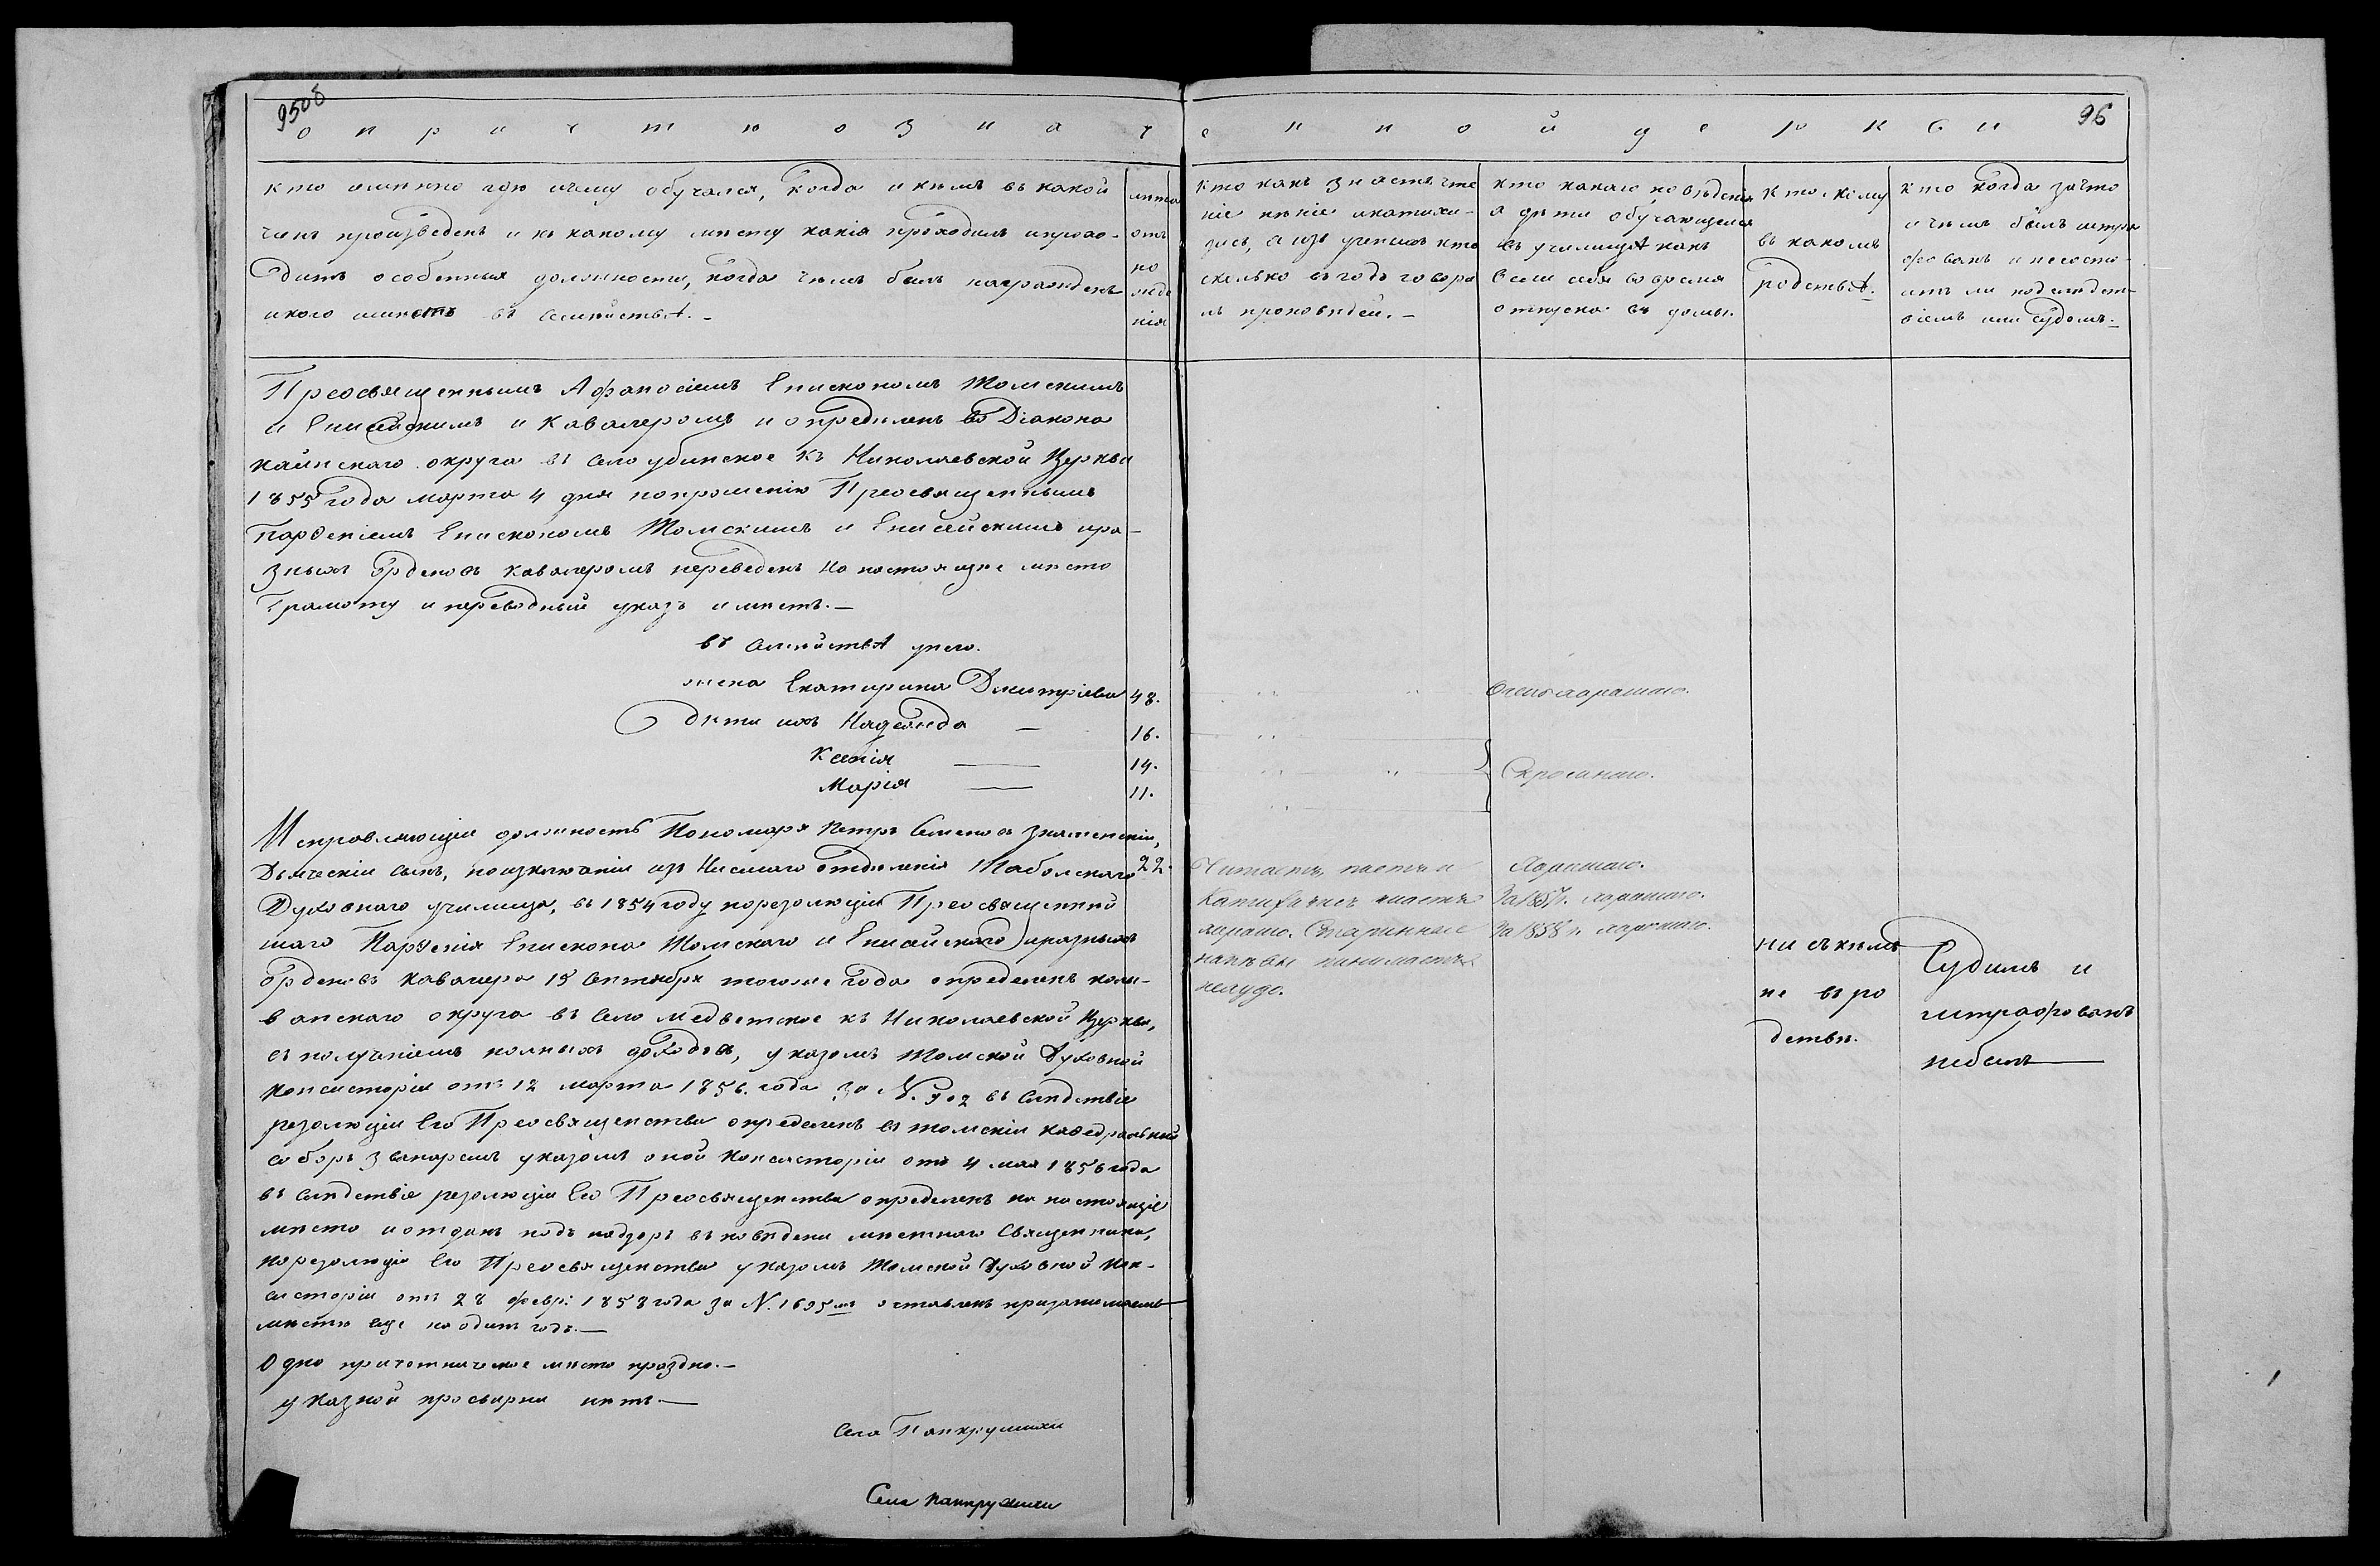 95об
96
о причтѣ означенной церкви
кто именно гдѣ ичему обучался, когда и кѣмъ въ какой
чинъ произведенъ и къ какому мѣсту какія проходилъ ипрохо-
дитъ особенныя должности, когда чемъ былъ награжденъ
икого имѣетъ въ семействѣ.-
лѣта
отъ
рож
де
нія
Кто какъ знаетъ чте
ніе пѣніе икатихи-
зисъ, а изъ ученыхъ кто
сколько въ годъ говори
лъ проповѣдей.-
кто какаго поведенія
а дѣти обучающіеся
въ училищѣ какъ
вели себя во время
отпуска въ домы.
Кто кому
въ какомъ
родствѣ.
кто когда зачто
и чѣмъ былъ штра
фованъ и не состо-
итъ ли подслѣдст-
віемъ или судомъ.-
Преосвященнымъ Афанасіемъ Епископомъ Томскимъ
и Енисейскимъ и Кавалеромъ и опредѣленъ во Діакона
каинскаго округа въ село убинское къ Николаевской Церкви
1855 года марта 4 дня попрошенію Преосвященнымъ
Парѳеніемъ Епископомъ Томскимъ и Енисейскимъ ира-
зныхъ Орденовъ кавалеромъ переведенъ на настоящее мѣсто
Грамоту и переводный указъ имѣетъ.-
въ семействѣ унего.
жена Екатерина Дмитріева 48. Очень хорошаго.
дѣти ихъ Надежда — 16.
Ксенія — 14. Скромнаго.
Марія — 11.
Исправляющій должность Пономаря Петръ Семеновъ Знаменскій,
Дьяческій сынъ, поизключеніи изъ Нисшаго отдѣленія Тобольскаго 22.
Духовнаго училища, въ 1854 году порезолюціи Преосвященнѣй
шаго Парѳенія Епископа Томскаго и Енисейскаго иразныхъ
орденовъ кавалера 15 сентября тогоже года опредѣленъ колы-
ванскаго округа въ село медветское къ Николаевской Церкви,
съ полученіемъ полныхъ доходовъ, указомъ Томской Духовной
Консисторіи отъ 12 марта 1856. года за №. 902 въ слѣдствіе
резолюціи Его Преосвященства опредѣленъ въ томскій каѳедральный
соборъ звонаремъ указомъ оной Консисторіи отъ 4 мая 1856 года
въ слѣдствіе резолюціи Его Преосвященства опредѣленъ на настоящіе
мѣсто иотданъ подъ надзоръ въ поведеніи мѣстнаго Священника,
порезолюціи Его Преосвященства указомъ Томской Духовной Кон-
систоріи отъ 28 февр: 1858 года за №. 1695мъ оставленъ призанимаемомъ
мѣстѣ еще на одинъ годъ.—
Одно причетническое мѣсто праздно.-
указной просвирни нѣтъ.—
Села Панкрушихи
Села Панкрушихи
Читаетъ, поетъ и
Катихизисъ знаетъ
хорошо. Старинные
напѣвы понимаетъ
нехудо.
Хорошаго.
За 1857 г. хорошаго.
За 1858 г. хорошаго.
ни съ кѣмъ
не въ ро
дствѣ.
Судимъ и
штрафованъ
небылъ